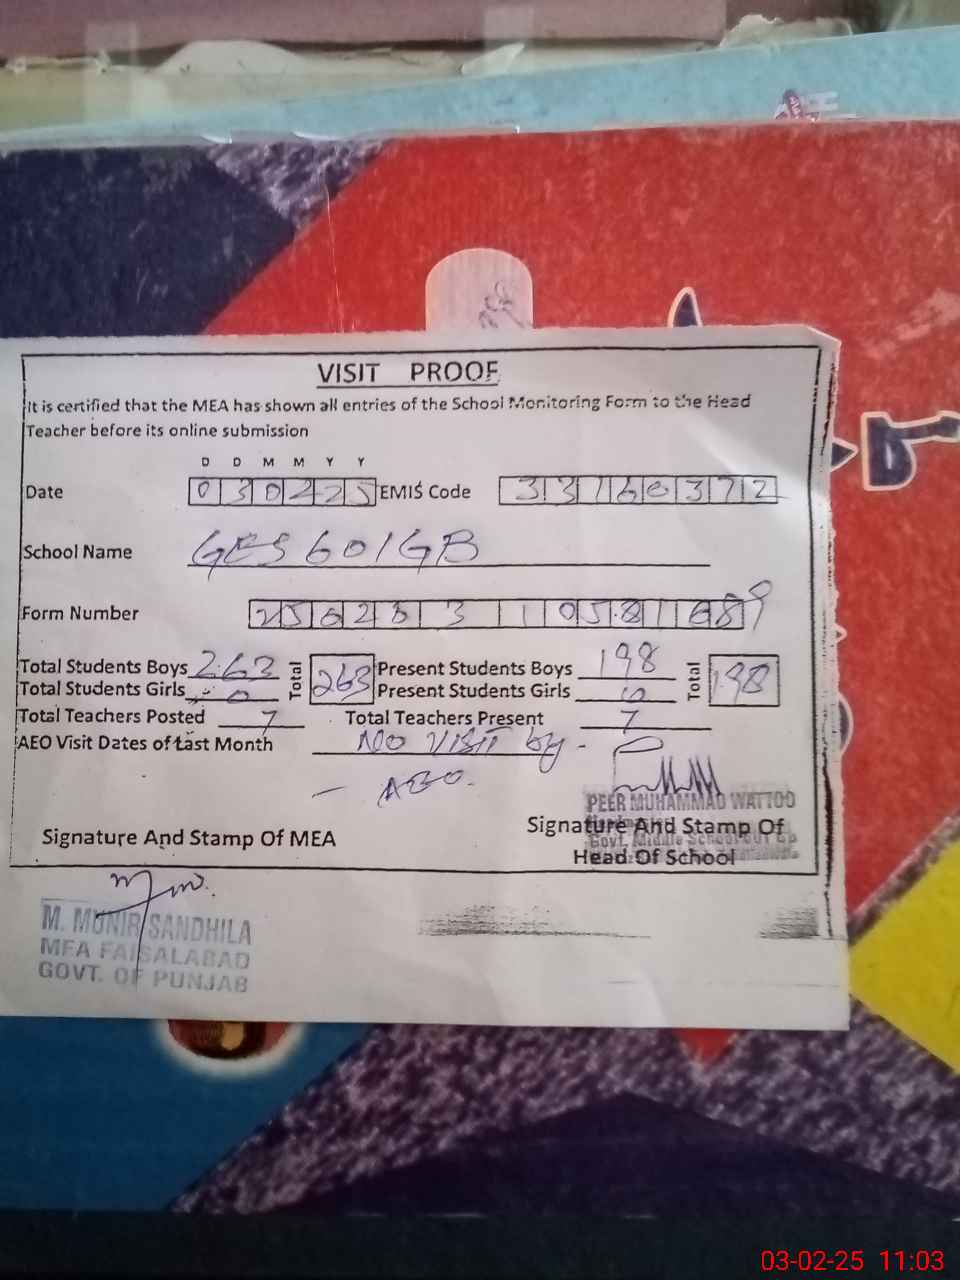 VISIT PROOF
It is certified that the MEA has shown all entries of the School Monitoring Form to the Head
Teacher before its online submission
D D M M Y Y
Date 030225 EMIS Code 33160372
School Name GES 601GB
Form Number
Total Students Boys 263 Total 263 Present Students Boys 198 Total 198
Total Students Girls 0 Present Students Girls
Total Teachers Posted 7 Total Teachers Present 7
AEO Visit Dates of Last Month NO VISIT by -
- AEO.
PEER MUHAMMAD WATTOO
Headmaster
Signature And Stamp Of MEA Signature And Stamp Of
Govt. Middle School
Head Of School
M. MUNIR SANDHILA
MEA FAISALABAD
GOVT. OF PUNJAB
03-02-25 11:03